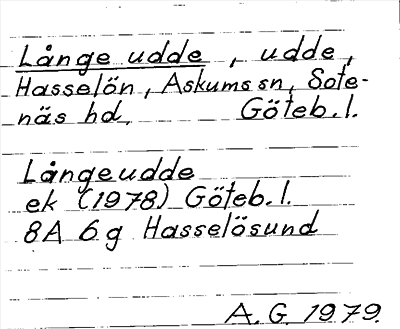 Långe udde, udde,
Hasselön, Askums sn, Sote-
näs hd, Göteb. l.
Långeudde
ek (1978) Göteb. l.
8A 6g Hasselösund
A. G. 1979.